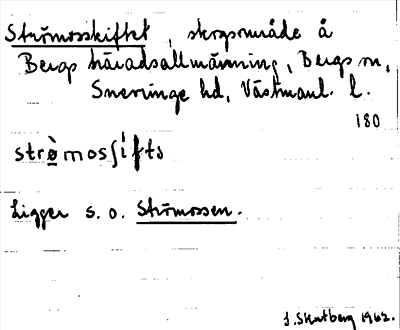 Strömosskiftet, skogsområde å
Bergs häradsallmänning, Bergs sn,
Snevringe hd, Västmanl. l.
180
strò̱mosʃífts
Ligger s. o. Strömossen.
J. Skutberg 1962.